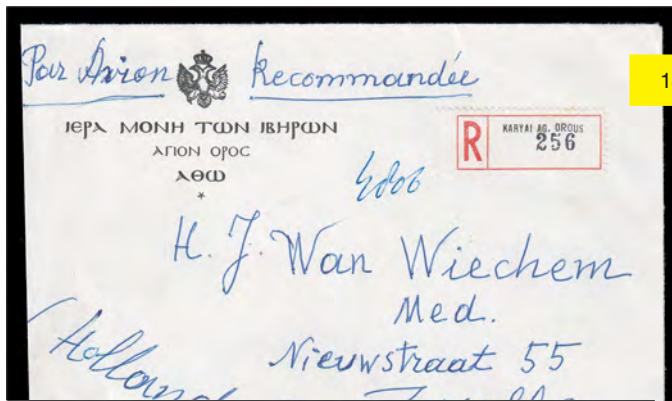 Par Avion Recommandée
1
ΙΕΡΑ ΜΟΝΗ ΤΩΝ ΙΒΗΡΩΝ
ΑΓΙΟΝ ΟΡΟC
ΑΘΩ
*
R KARYAI AG. OROUS
256
H. J. Wan Wiechem
Med.
Nieuwstraat 55
Holland